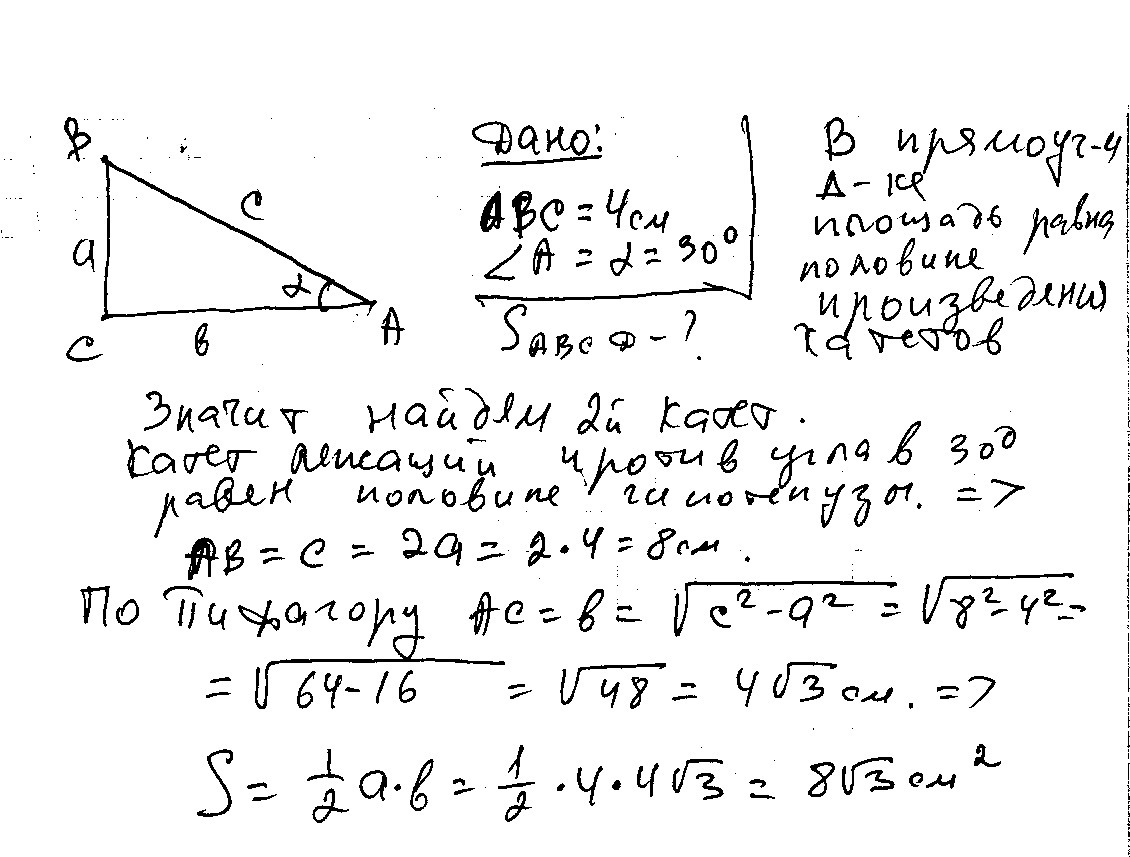 B
a
c
α
C
в
A
Дано:
ABC = 4 см
∠A = α = 30°
S ABCD - ?
В прямоуг-м
Δ-ке
площадь равна
половине
произведения
катетов
Значит найдём 2й катет.
Катет лежащий против угла в 30°
равен половине гипотенузы. =>
AB = c = 2a = 2·4 = 8 см.
По Пифагору AC = в = √(c² - a²) = √(8² - 4²) =
= √(64-16) = √48 = 4√3 см. =>
S = 1/2 a·в = 1/2 · 4 · 4√3 = 8√3 см²